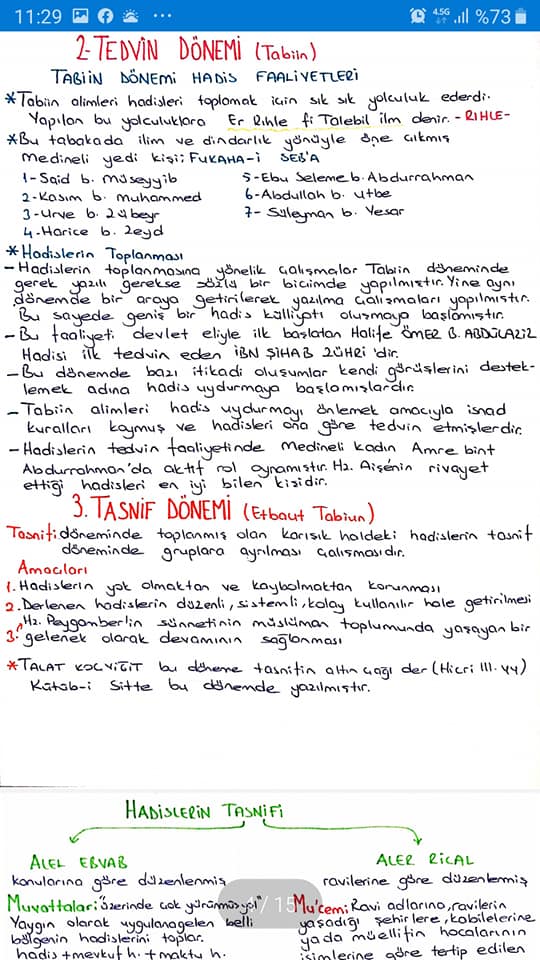 11:29
4.5G
%73
2-TEDVİN DÖNEMİ (Tabiin)
TABİİN DÖNEMİ HADİS FAALİYETLERİ
*Tabiin alimleri hadisleri toplamak için sık sık yolculuk ederdi.
Yapılan bu yolculuklara Er Rıhle fi Talebil ilm denir. -RIHLE-
*Bu tabakada ilim ve dindarlık yönüyle öne çıkmış
Medineli yedi kişi: FUKAHA-İ SEB'A
1-Said b. Müseyyib
5-Ebu Seleme b. Abdurrahman
2-Kasım b. Muhammed
6-Abdullah b. Utbe
3-Urve b. Zübeyr
7- Süleyman b. Yesar
4-Harice b. Zeyd
*Hadislerin Toplanması
-Hadislerin toplanmasına yönelik çalışmalar Tabiin döneminde
gerek yazılı gerekse sözlü bir biçimde yapılmıştır. Yine aynı
dönemde bir araya getirilerek yazılma çalışmaları yapılmıştır.
Bu sayede geniş bir hadis külliyatı oluşmaya başlamıştır.
-Bu faaliyeti devlet eliyle ilk başlatan Halife ÖMER B. ABDÜLAZİZ
Hadisi ilk tedvin eden İBN ŞİHAB ZÜHRİ 'dir.
-Bu dönemde bazı itikadi oluşumlar kendi görüşlerini destek-
lemek adına hadis uydurmaya başlamışlardır.
-Tabiin alimleri hadis uydurmayı önlemek amacıyla isnad
kuralları koymuş ve hadisleri ona göre tedvin etmişlerdir.
-Hadislerin tedvin faaliyetinde Medineli kadın Amre bint
Abdurrahman'da aktif rol oynamıştır. Hz. Aişenin rivayet
ettiği hadisleri en iyi bilen kişidir.
3.TASNİF DÖNEMİ (Etbaut Tabiun)
Tasnif: döneminde toplanmış olan karışık haldeki hadislerin tasnif
döneminde gruplara ayrılması çalışmasıdır.
Amaçları
1.Hadislerin yok olmaktan ve kaybolmaktan korunması
2.Derlenen hadislerin düzenli, sistemli, kolay kullanılır hale getirilmesi
3.Hz. Peygamber'in sünnetinin müslüman toplumunda yaşayan bir
gelenek olarak devamının sağlanması
*TALAT KOÇYİĞİT bu döneme tasnifin altın çağı der (Hicri III. yy)
Kütüb-i Sitte bu dönemde yazılmıştır.
HADİSLERİN TASNİFİ
ALEL EBVAB
ALER RİCAL
konularına göre düzenlenmiş
ravilerine göre düzenlenmiş
Muvattalar: "üzerinde çok yürünmüş yol"
Yaygın olarak uygulanagelen belli
bölgenin hadislerini toplar.
hadis + mevkuf h. + maktu h.
4/15
Mu'cem: Ravi adlarına, ravilerin
yaşadığı şehirlere, kabilelerine
yada müellifin hocalarının
isimlerine göre tertip edilen